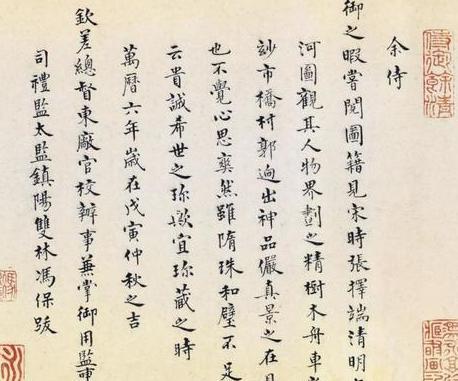 余侍
御之暇嘗閱圖籍見宋時張擇端清明
河圖觀其人物界劃之精樹木舟車
妙市橋村郭迥出神品儼真景之在
也不覺心思爽然雖隋珠和璧不足
云貴誠希世之珍歟宜珍藏之時
萬曆六年歲在戊寅仲秋之吉
欽差總督東廠官校辦事兼掌御用監事
司禮監太監鎮陽雙林馮保跋